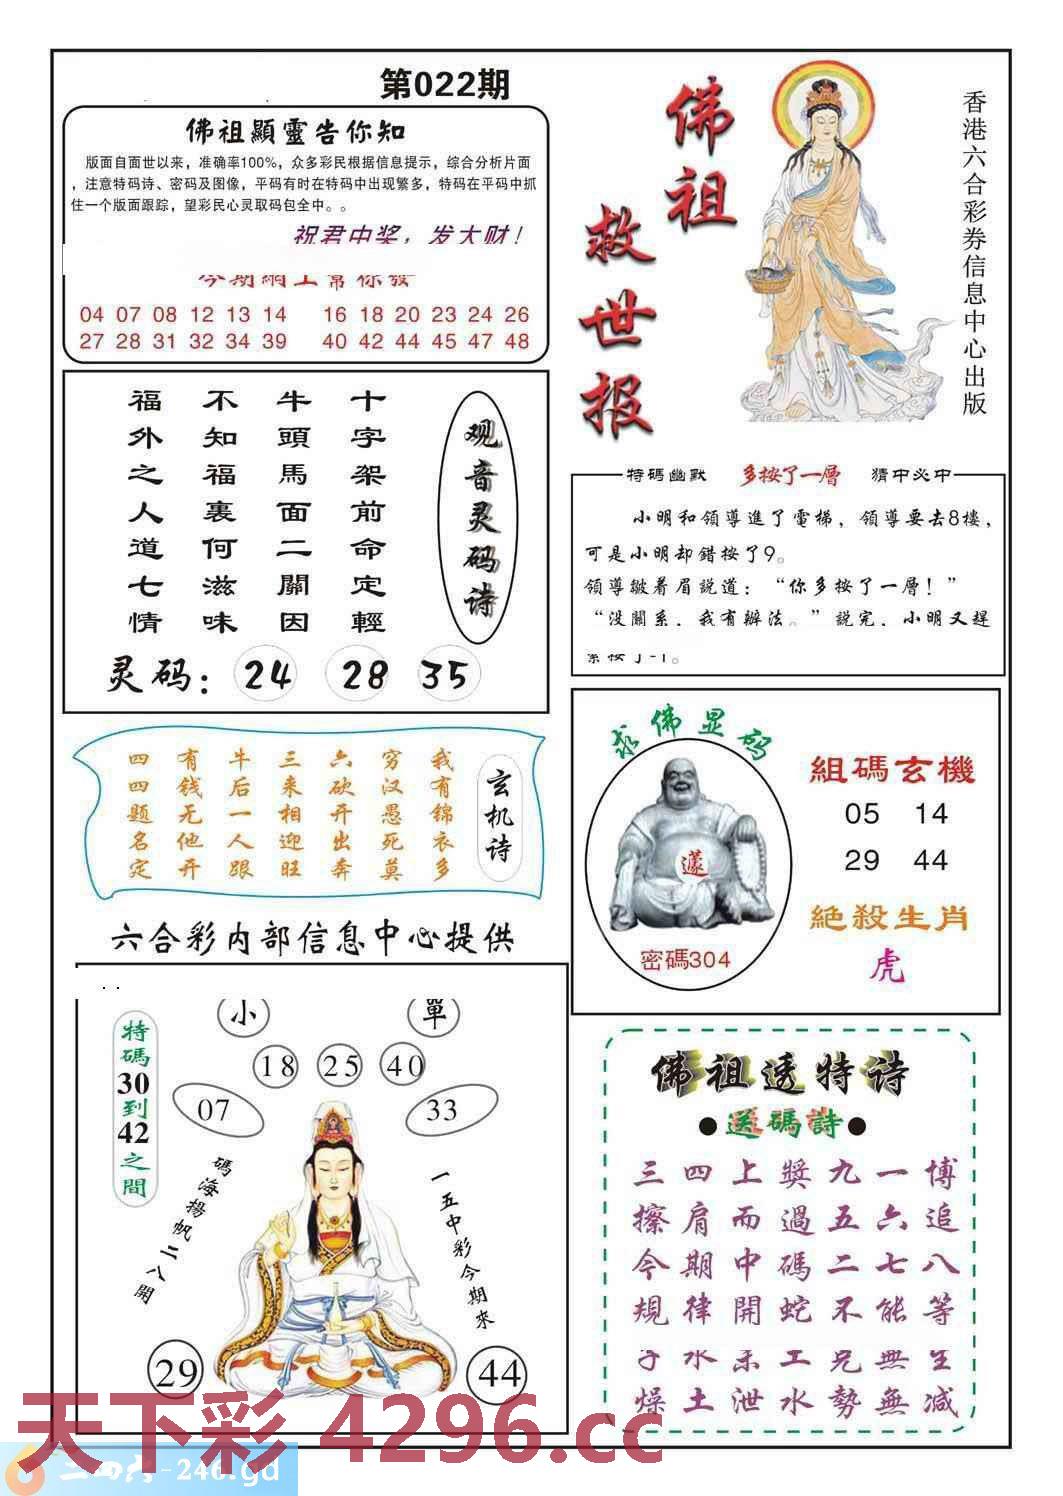 第022期
佛祖顯靈告你知
版面自面世以来，准确率100%，众多彩民根据信息提示，综合分析片面
，注意特码诗、密码及图像，平码有时在特码中出现繁多，特码在平码中抓
住一个版面跟踪，望彩民心灵取码包全中。。
祝君中奖，发大财！
今期網上幫你發
04 07 08 12 13 14 16 18 20 23 24 26
27 28 31 32 34 39 40 42 44 45 47 48
佛祖
救世报
香港六合彩券信息中心出版
观音灵码诗
十字架前命定輕
牛頭馬面二關因
不知福裏何滋味
福外之人道七情
灵码： 24 28 35
特碼幽默 多按了一層 猜中必中
小明和領導進了電梯，領導要去8樓，
可是小明却錯按了9。
領導皺着眉説道：“你多按了一層！”
“没關系，我有辦法。”説完，小明又趕
玄机诗
我有锦衣多
穷汉愚死莫
六砍开出奔
三来相迎旺
牛后一人跟
有钱无他开
四四题名定
求佛显码
密碼304
組碼玄機
05 14
29 44
絕殺生肖
虎
六合彩内部信息中心提供
小 單
18 25 40
07 33
特碼30到42之間
碼海揚帆二八開
一五中彩今期來
29 44
佛祖透特诗
●送碼詩●
三四上獎九一博
擦肩而過五六追
今期中碼二七八
規律開蛇不能等
燥土泄水勢無减
天下彩 4296.cc
二四六-246.gd